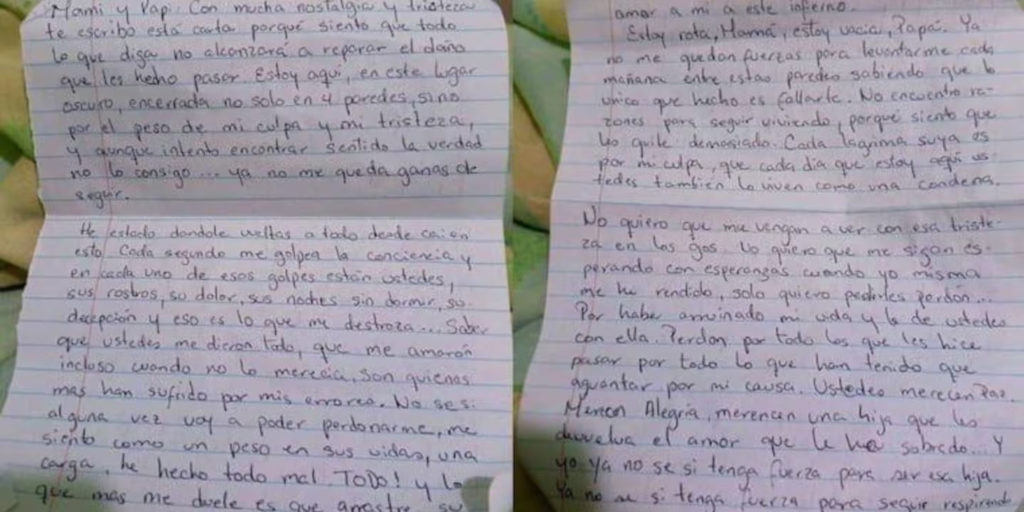 Mami y Papi. Con mucha nostalgia y tristeza
te escribo está carta porqué siento que todo
lo que diga no alcanzará a reparar el daño
que les hecho pasar. Estoy aquí, en este lugar
oscuro, encerrada no solo en 4 paredes, sino
por el peso de mi culpa y mi tristeza,
y aunque intento encontrar sentido la verdad
no lo consigo... ya no me queda ganas de
seguir.
He estado dandole vueltas a todo desde cai en
esto. Cada segundo me golpea la conciencia y
en cada uno de esos golpes están ustedes,
sus rostros, su dolor, sus noches sin dormir, su
decepción y eso es lo que me destroza... Saber
que ustedes me dieron todo, que me amaron
incluso cuando no lo merecia, son quienes
mas han sufrido por mis errores. No se si
alguna vez voy a poder perdonarme, me
siento como un peso en sus vidas, una
carga, he hecho todo mal TODO! y lo
que mas me duele es que arrastre su
amor a mi a este infierno.
Estoy rota, Mamá, estoy vacia, Papá. Ya
no me quedan fuerzas para levantarme cada
mañana entre estas paredes sabiendo que lo
unico que hecho es fallarle. No encuentro ra-
zones para seguir viviendo, porqué siento que
les quite demasiado. Cada lagrima suya es
por mi culpa, que cada dia que estoy aquí us-
tedes también lo viven como una condena.
No quiero que me vengan a ver con esa triste-
za en los ojos. No quiero que me sigan es-
perando con esperanzas cuando yo misma
me he rendido, solo quiero pedirles perdón...
Por haber arruinado mi vida y la de ustedes
con ella. Perdon por todo los que les hice
pasar por todo lo que han tenido que
aguantar por mi causa. Ustedes merecen Paz.
Merecen Alegria, merencen una hija que les
devuelva el amor que le ha sobrado... Y
yo ya no se si tenga fuerza para ser esa hija.
Ya no se si tenga fuerza para seguir respirando